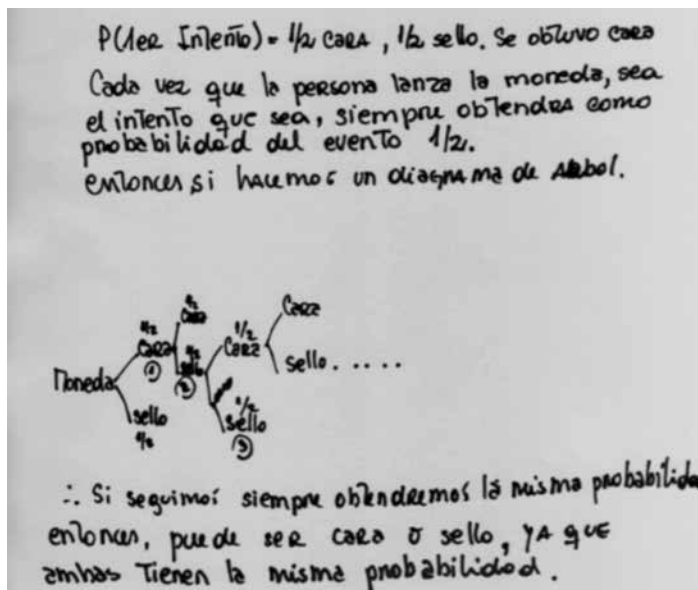 P(1er Intento) = 1/2 cara, 1/2 sello. Se obtuvo cara
Cada vez que la persona lanza la moneda, sea
el intento que sea, siempre obtendra como
probabilidad del evento 1/2.
entonces si hacemos un diagrama de Arbol.
1/2 Cara
1/2 Cara
1/2 Cara
Cara
Moneda
1
1/2 sello
2
sello . . . . .
sello
1/2
1/2
sello
3
∴ Si seguimos siempre obtendremos la misma probabilida
entonces, puede ser cara o sello, ya que
ambas tienen la misma probabilidad.